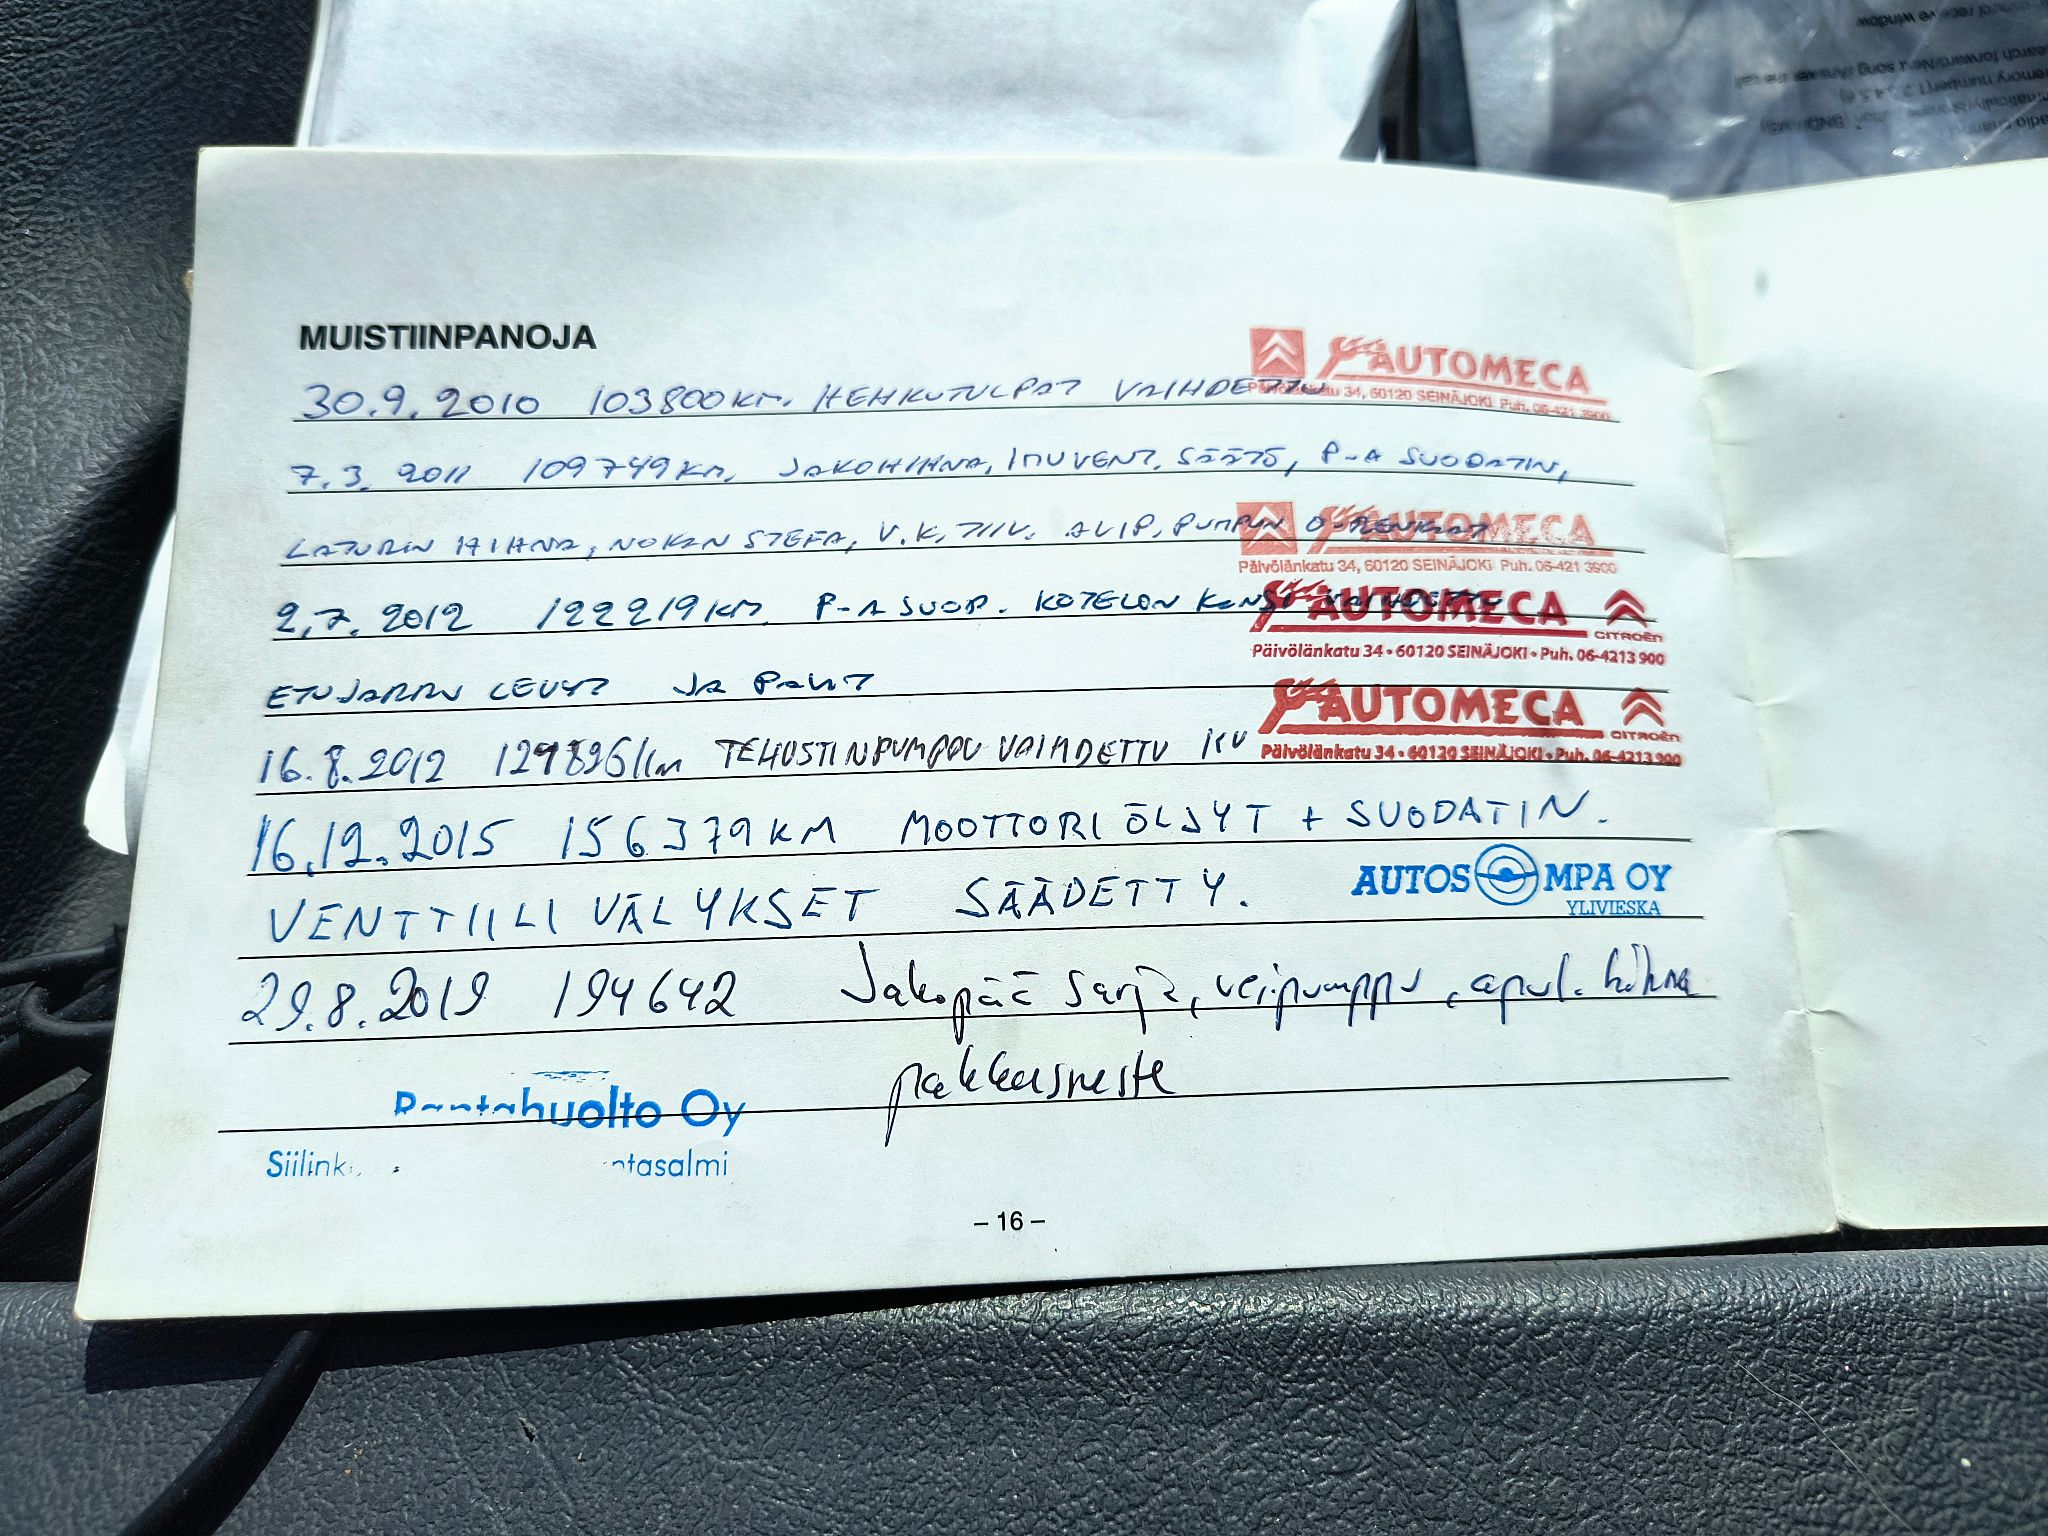 MUISTIINPANOJA
AUTOMECA
30.9.2010 103800KM. HEHKUTULPAT VAIHDETTU
Päivölänkatu 34, 60120 SEINÄJOKI Puh. 06-421 3900
7.3.2011 109749KM. JAKOHIHNA, IMUVENT. SÄÄTÖ, P-A SUODATIN,
LATURIN HIHNA, NOKAN STEFA, V.K. TIIV. ALIP. PUMPUN O-RENKAAT
AUTOMECA
Päivölänkatu 34, 60120 SEINÄJOKI Puh. 06-421 3900
2.7.2012 122219KM. P-A SUOD. KOTELON KANSI VAIHDETTU
AUTOMECA CITROËN
Päivölänkatu 34 • 60120 SEINÄJOKI • Puh. 06-4213 900
ETUJARRU LEVYT JA PALAT
AUTOMECA CITROËN
16.8.2012 KM TEHOSTINPUMPPU VAIHDETTU
Päivölänkatu 34 • 60120 SEINÄJOKI • Puh. 06-4213 900
16.12.2015 156379KM MOOTTORI ÖLJYT + SUODATIN.
VENTTIILI VÄLYKSET SÄÄDETTY.
AUTOSOMPA OY
YLIVIESKA
29.8.2019 194642 Jakopää sarja, vesipumppu, apul. hihna
pakkasneste
Rantahuolto Oy
– 16 –